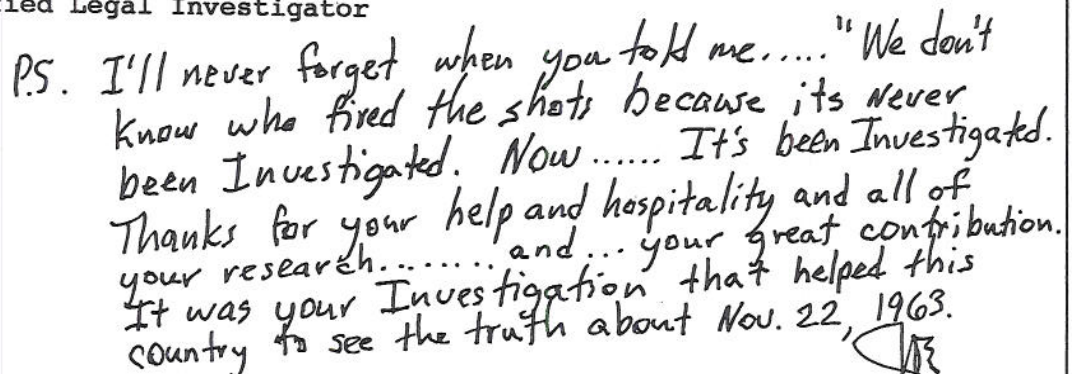 ied Legal Investigator
P.S. I'll never forget when you told me....."We don't
know who fired the shots because its never
been Investigated. Now...... It's been Investigated.
Thanks for your help and hospitality and all of
your research......... and... your great contribution.
It was your Investigation that helped this
country to see the truth about Nov. 22, 1963.